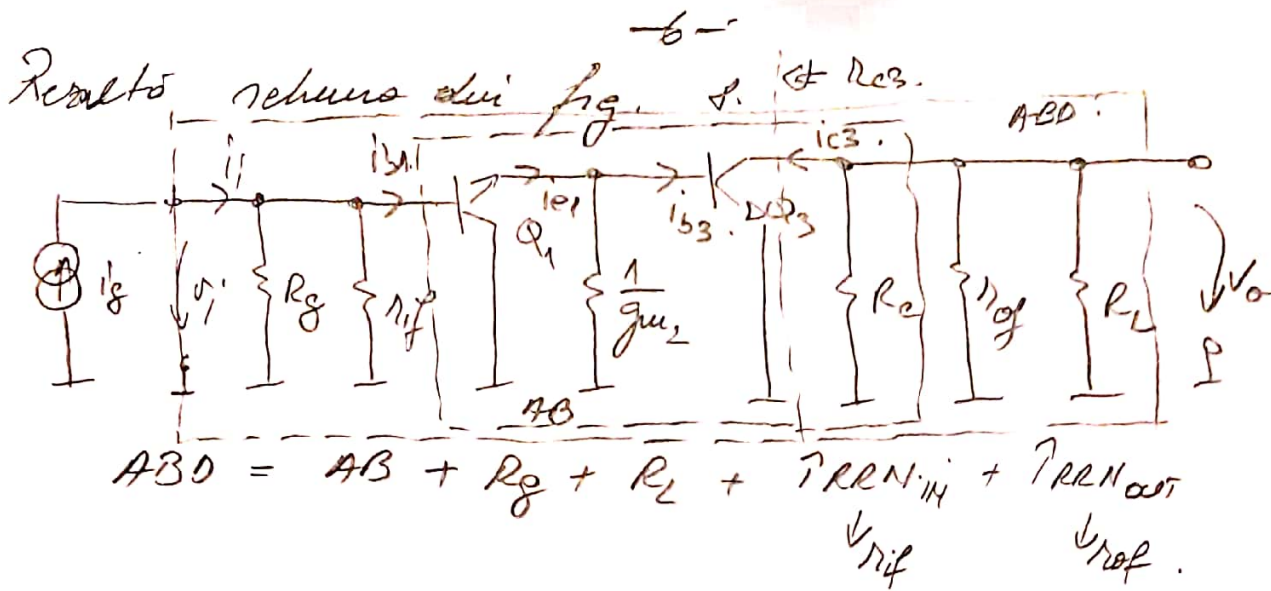 -6-
Rezultă schema din fig. 8.
ABD.
i_i
i_b1
i_e1
Q_1
i_b3
Q_3
i_c3.
i_g
v_i
R_g
r_if
1/g_m2
R_c
r_of
R_L
v_o
AB
ABD = AB + R_g + R_L + ÎRRN_IN + ÎRRN_OUT
↓ r_if ↓ r_of.